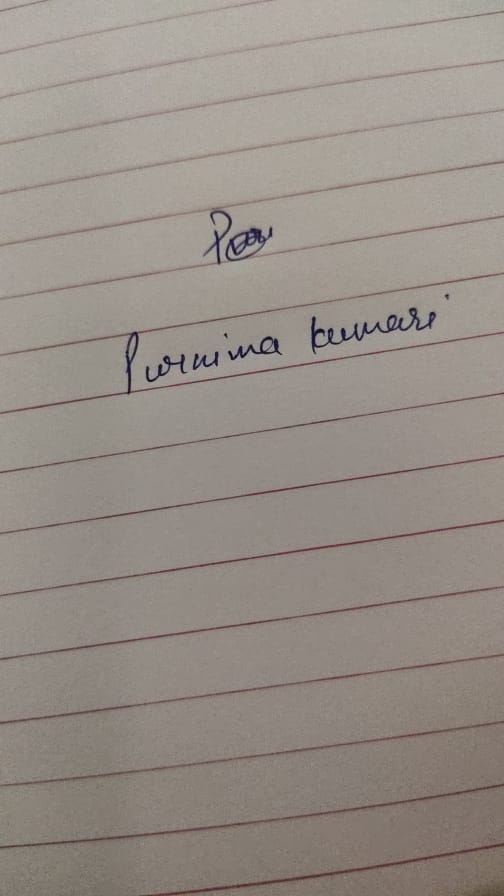 Purnima kumari